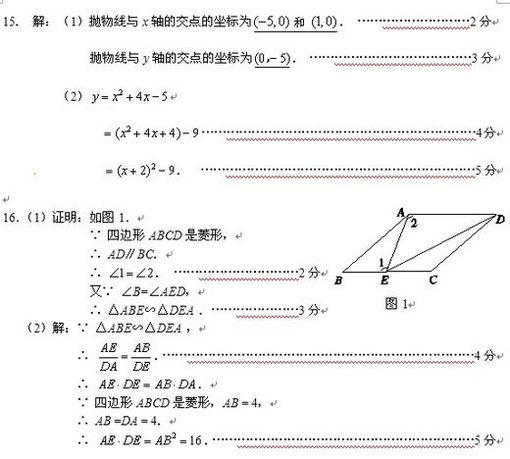 15. 解：（1）抛物线与 x 轴的交点的坐标为 (−5,0) 和 (1,0)． ……………………2 分↵
抛物线与 y 轴的交点的坐标为 (0,−5)． ………………………………3 分↵
（2） y = x² + 4x − 5 ↵
= (x² + 4x + 4) − 9 ……………………………………………………4分↵
= (x + 2)² − 9． ……………………………………………………5 分↵
↵
16.（1）证明：如图 1．↵
∵ 四边形 ABCD 是菱形，↵
∴ AD∥BC．↵
∴ ∠1=∠2． ……………………2 分↵
又∵ ∠B=∠AED，↵
∴ △ABE∽△DEA． ……………3 分↵
A
2
D
1
B
E
C
图 1↵
（2）解：∵ △ABE∽△DEA，↵
∴ AE/DA = AB/DE．……………………………………………………4 分↵
∴ AE · DE = AB · DA．↵
∵ 四边形 ABCD 是菱形，AB = 4，↵
∴ AB =DA = 4．↵
∴ AE · DE = AB² = 16．……………………………………………5 分↵